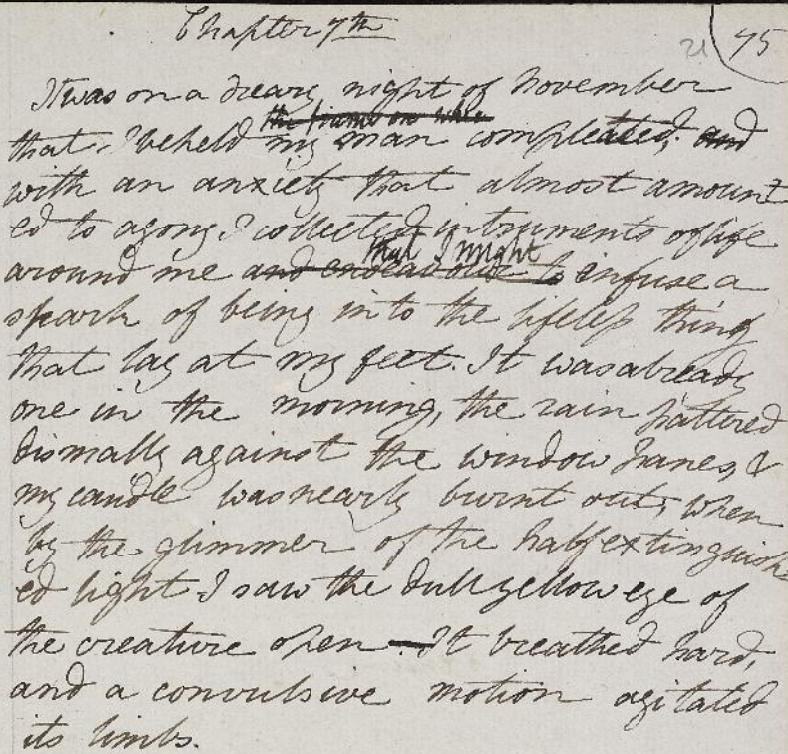 Chapter 7th
21 75
It was on a dreary night of November
the frame on whic
that I beheld my man compleated, and
with an anxiety that almost amount
ed to agony I collected instruments of life
that I might
around me and endeavour to infuse a
spark of being into the lifeless thing
that lay at my feet. It was already
one in the morning, the rain pattered
dismally against the window panes, &
my candle was nearly burnt out, when
by the glimmer of the half extinguish
ed light I saw the dull yellow eye of
the creature open — It breathed hard,
and a convulsive motion agitated
its limbs.